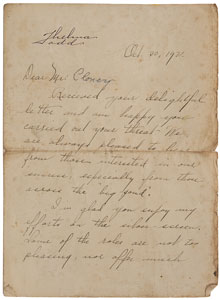 Thelma
Todd
Oct. 20, 192
Dear Mr Clowery
Received your delightful
letter and am happy you
carried out your threat. We
are always pleased to hear
from those interested in our
success, especially from those
across the "big pond".
I'm glad you enjoy my
efforts on the silver-screen.
Some of the roles are not too
pleasing, nor offer much